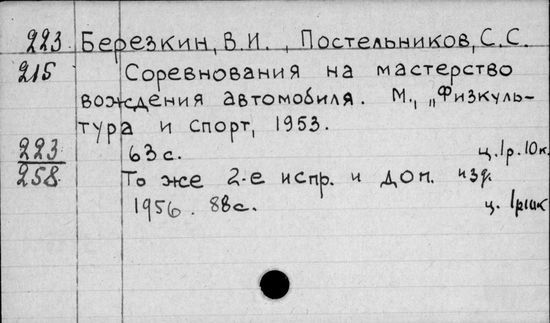 223 Березкин, В.И. , Постельников, С.С.
215 Соревнования на мастерство
вождения автомобиля. М., „Физкуль-
тура и спорт, 1953.
223 63 с. ц. 1р. 10к.
258 То же 2-е испр. и доп. изд.
1956. 88с. ц.